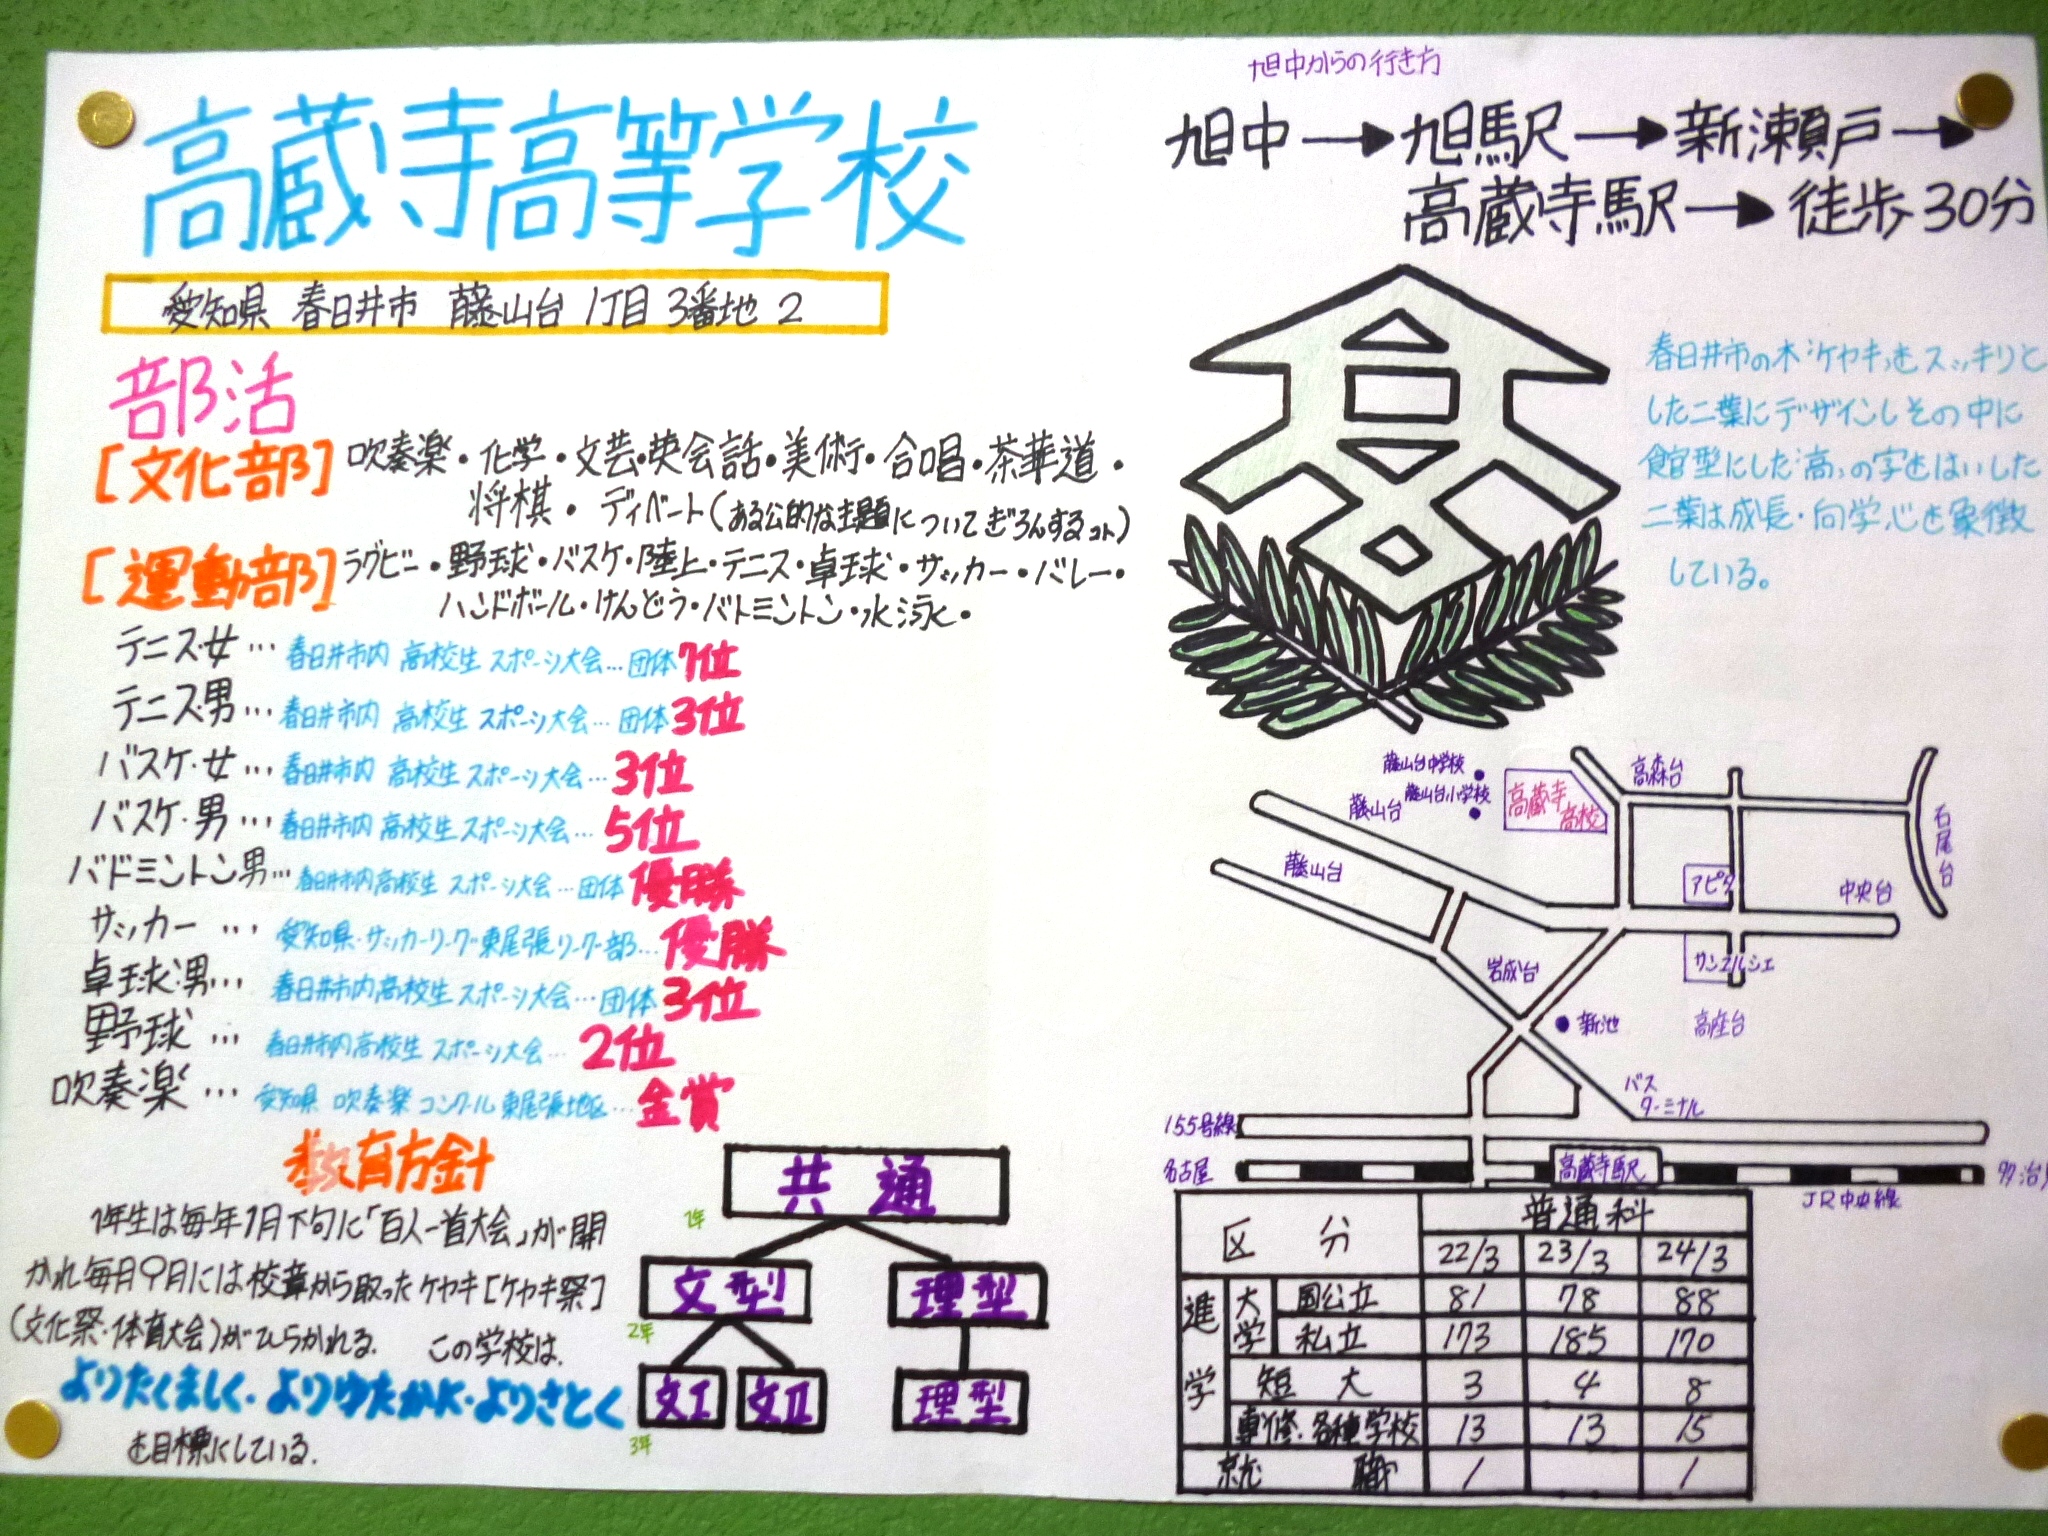 高蔵寺高等学校
愛知県 春日井市 藤山台 1丁目 3番地 2
部活
[文化部] 吹奏楽・化学・文芸・英会話・美術・合唱・茶華道・
将棋・ディベート(ある公的な主題についてぎろんするコト)
[運動部] ラグビー・野球・バスケ・陸上・テニス・卓球・サッカー・バレー・
ハンドボール・けんどう・バトミントン・水泳・
テニス・女…春日井市内 高校生 スポーツ大会…団体1位
テニス・男…春日井市内 高校生 スポーツ大会…団体3位
バスケ・女…春日井市内 高校生 スポーツ大会…3位
バスケ・男…春日井市内 高校生 スポーツ大会…5位
バドミントン男…春日井市内高校生 スポーツ大会…団体優勝
サッカー…愛知県・サッカーリーグ東尾張リーグ部…優勝
卓球・男…春日井市内高校生 スポーツ大会…団体3位
野球…春日井市内高校生 スポーツ大会…2位
吹奏楽…愛知県 吹奏楽 コンクール 東尾張地区…金賞
教育方針
1年生は毎年1月下旬に「百人一首大会」が開
かれ毎月9月には校章から取ったケヤキ[ケヤキ祭]
(文化祭・体育大会)がひらかれる. この学校は.
よりたくましく・よりゆたかに・よりさとく
を目標にしている.
共通
1年
文型 理型
2年
文I 文II 理型
3年
旭中からの行き方
旭中→旭駅→新瀬戸→
高蔵寺駅→徒歩30分
春日井市の木「ケヤキ」をスッキリと
した二葉にデザインしその中に
館型にした「高」の字をはいした
二葉は成長・向学心を象徴
している。
藤山台中学校
藤山台小学校
藤山台
高蔵寺
高校
高森台
石尾台
藤山台
アピタ
中央台
サンマルシェ
岩成台
新池
高座台
バス
ターミナル
155号線
名古屋
高蔵寺駅
JR中央線
区分 普通科
22/3 23/3 24/3
進学 大学 国公立 81 78 88
私立 173 185 170
短大 3 4 8
専修・各種学校 13 13 15
就職 1 1